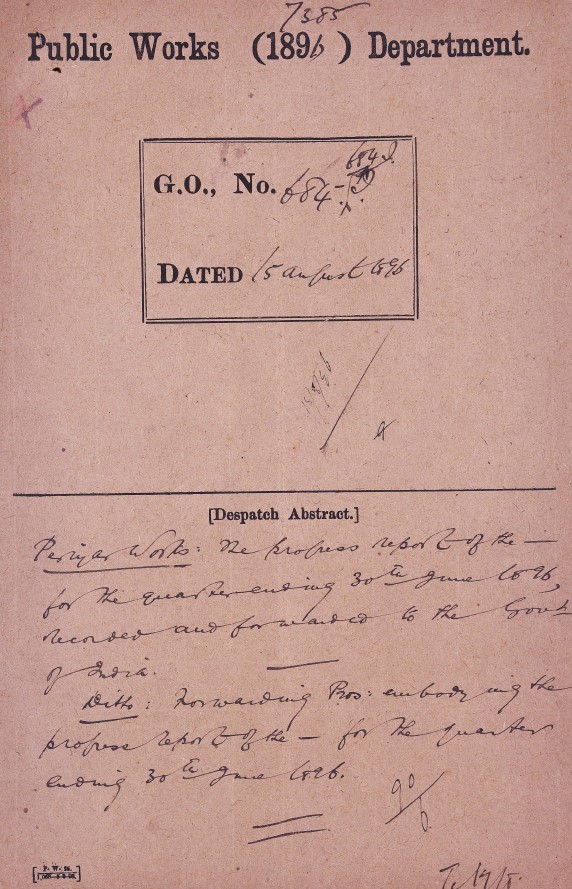 7385
Public Works (1896) Department.
684 I.
G.O., No. 684-I.
DATED 15 august 1896
15/8/96
[Despatch Abstract.]
Periyar Works: The progress report of the —
for the quarter ending 30th June 1896,
recorded and forwarded to the Govt
of India.
Ditto: Forwarding Pros: embodying the
progress report of the — for the quarter
ending 30th June 1896.
90/6.